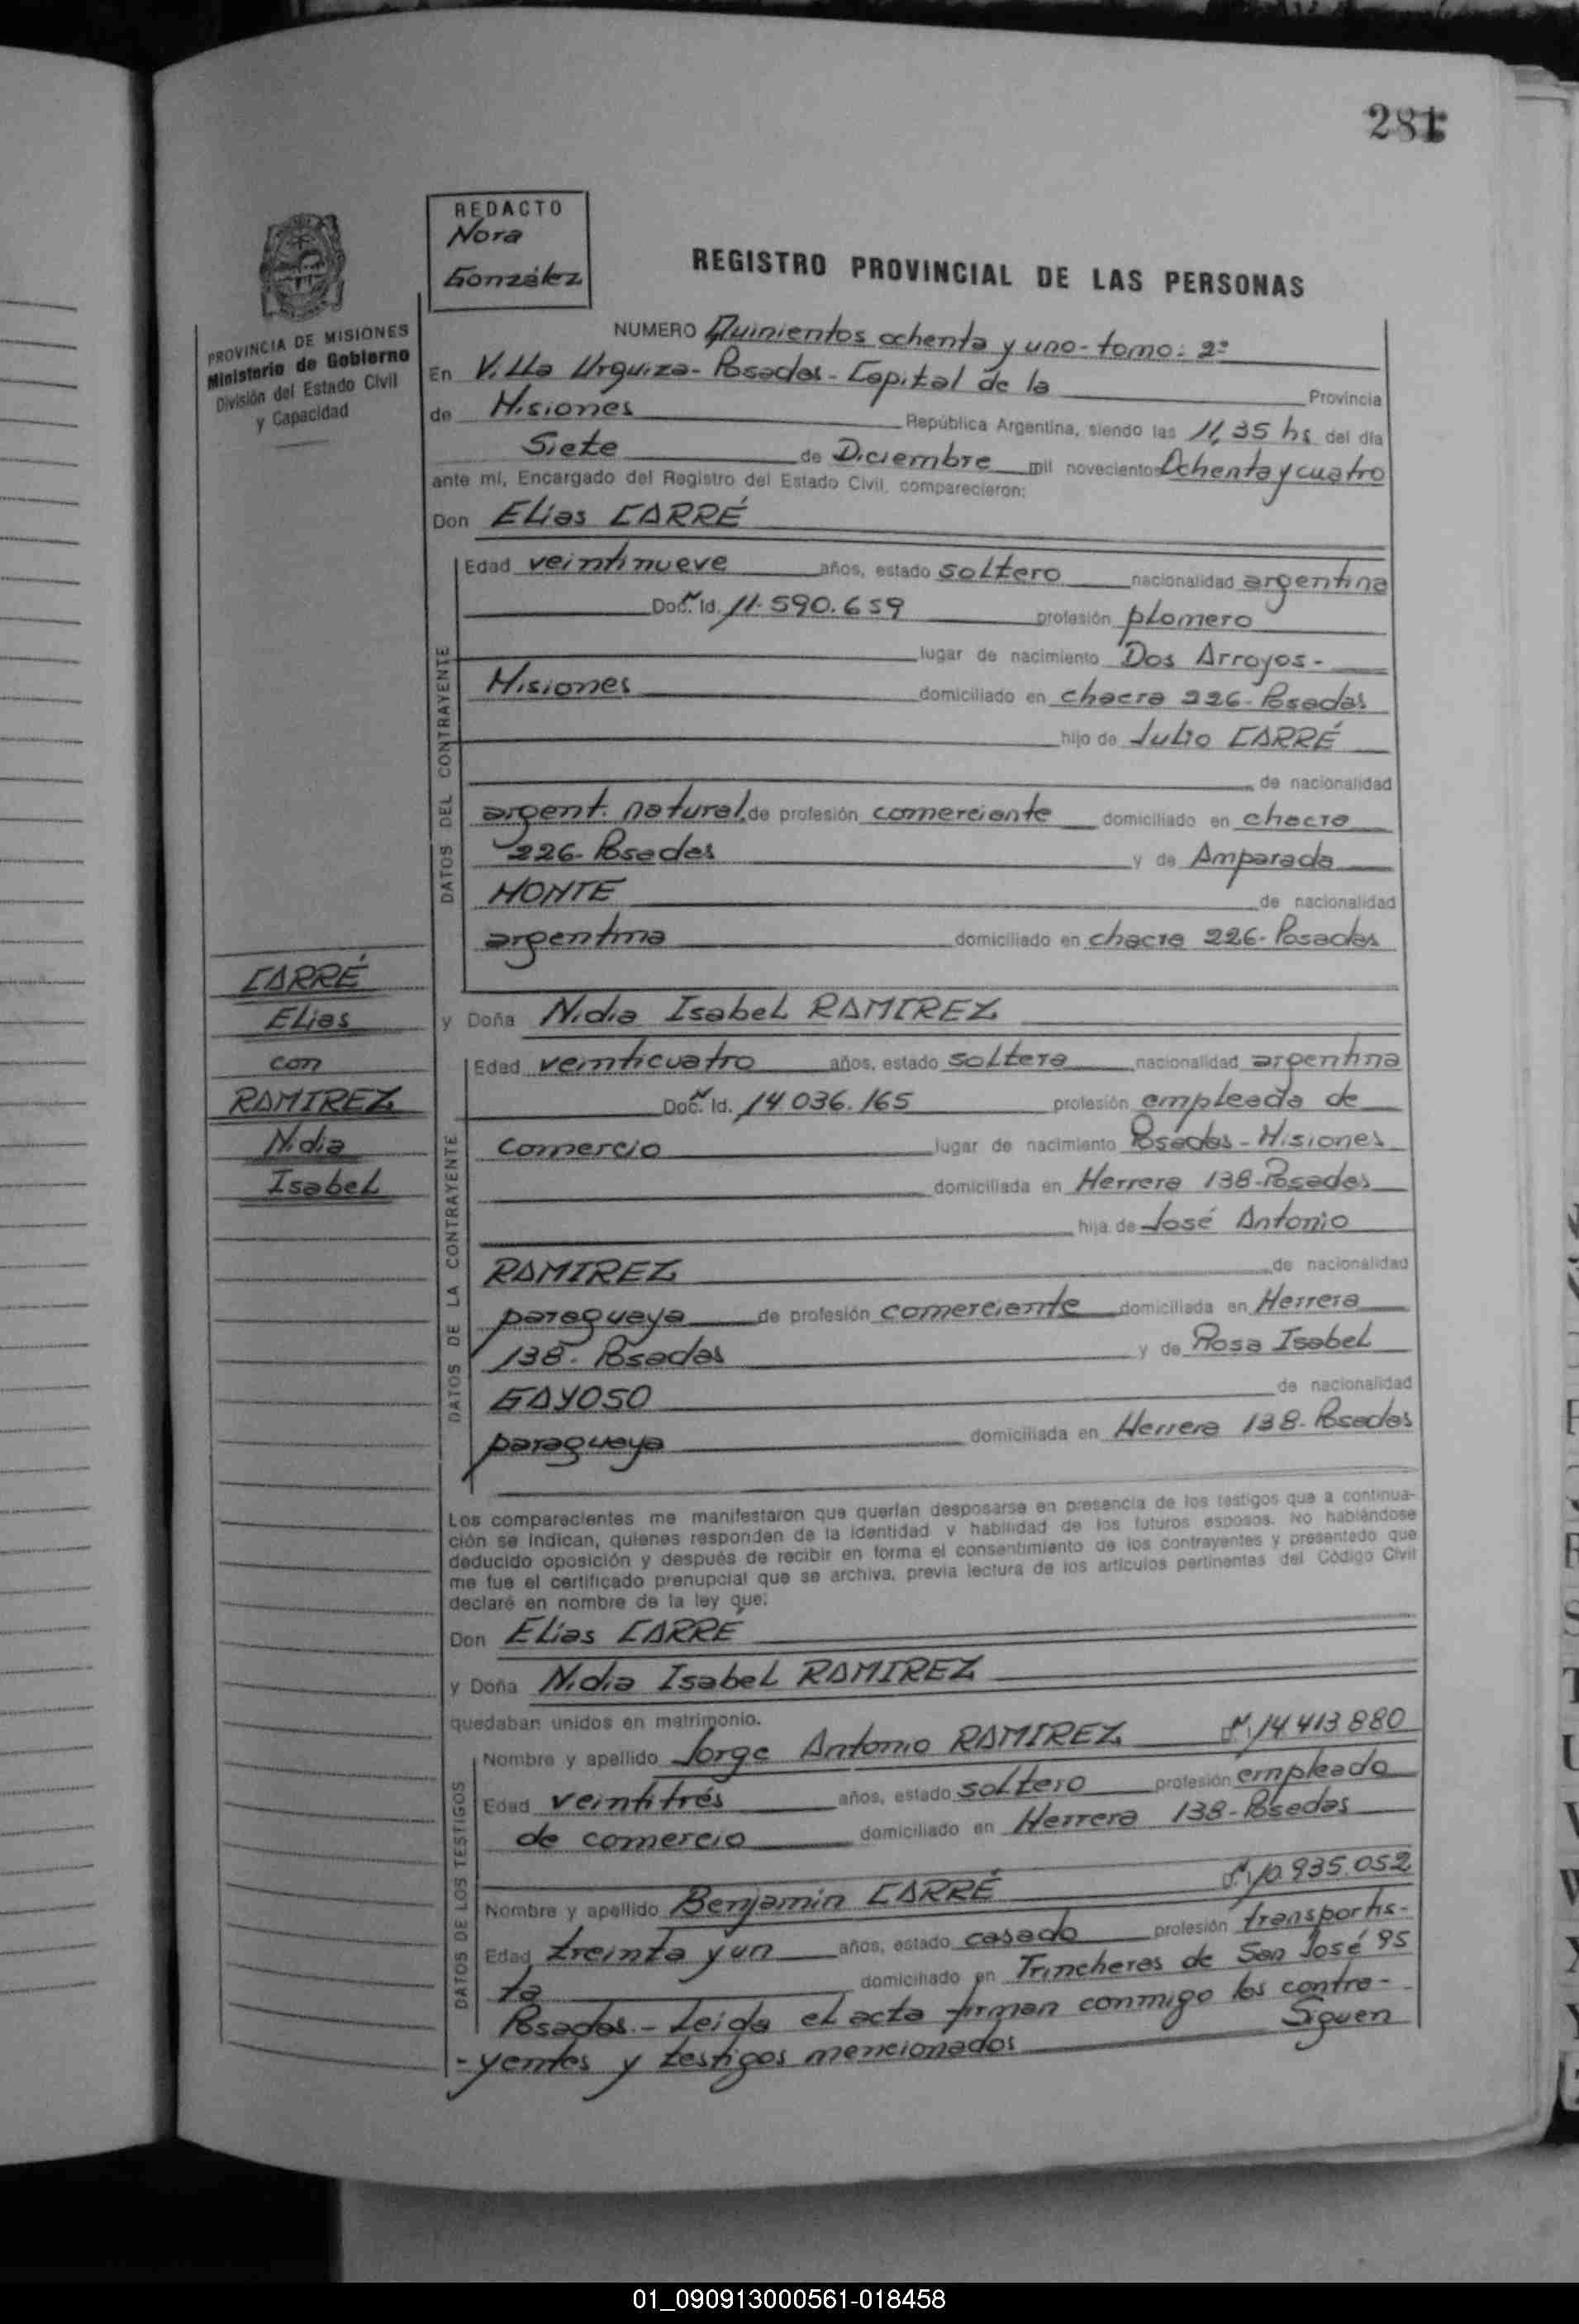 281
REDACTO
Nora
González
REGISTRO PROVINCIAL DE LAS PERSONAS
PROVINCIA DE MISIONES
Ministerio de Gobierno
División del Estado Civil
y Capacidad
NUMERO Quinientos ochenta y uno - tomo: 2º
En Villa Urquiza - Posadas - Capital de la Provincia
de Misiones República Argentina, siendo las 11,35 hs del día
Siete de Diciembre mil novecientos Ochenta y cuatro
ante mí, Encargado del Registro del Estado Civil, comparecieron:
Don Elias CARRÉ
DATOS DEL CONTRAYENTE
Edad veintinueve años, estado soltero nacionalidad argentina
Doc. Id. 11.590.659 profesión plomero
lugar de nacimiento Dos Arroyos -
Misiones domiciliado en chacra 226 - Posadas
hijo de Julio CARRÉ
de nacionalidad
argent. natural. de profesión comerciante domiciliado en chacra
226 - Posadas y de Amparada
MONTE de nacionalidad
argentina domiciliado en chacra 226 - Posadas
CARRÉ
Elias
con
RAMIREZ
Nidia
Isabel
y Doña Nidia Isabel RAMIREZ
DATOS DE LA CONTRAYENTE
Edad veinticuatro años, estado soltera nacionalidad argentina
Doc. Id. 14.036.165 profesión empleada de
comercio lugar de nacimiento Posadas - Misiones
domiciliada en Herrera 138 - Posadas
hija de José Antonio
RAMIREZ de nacionalidad
paraguaya de profesión comerciante domiciliada en Herrera
138 - Posadas y de Rosa Isabel
GAYOSO de nacionalidad
paraguaya domiciliada en Herrera 138 - Posadas
Los comparecientes me manifestaron que querían desposarse en presencia de los testigos que a continua-
ción se indican, quienes responden de la identidad y habilidad de los futuros esposos. No habiéndose
deducido oposición y después de recibir en forma el consentimiento de los contrayentes y presentado que
me fue el certificado prenupcial que se archiva, previa lectura de los artículos pertinentes del Código Civil
declaré en nombre de la ley que:
Don Elias CARRÉ
y Doña Nidia Isabel RAMIREZ
quedaban unidos en matrimonio.
DATOS DE LOS TESTIGOS
Nombre y apellido Jorge Antonio RAMIREZ 14.413.880
Edad veintitrés años, estado soltero profesión empleado
de comercio domiciliado en Herrera 138 - Posadas
Nombre y apellido Benjamin CARRÉ 10.935.052
Edad treinta y un años, estado casado profesión transportis-
ta domiciliado en Trincheras de San José 95
Posadas. - Leida el acta firman conmigo los contra-
- yentes y testigos mencionados Siguen
01_090913000561-018458